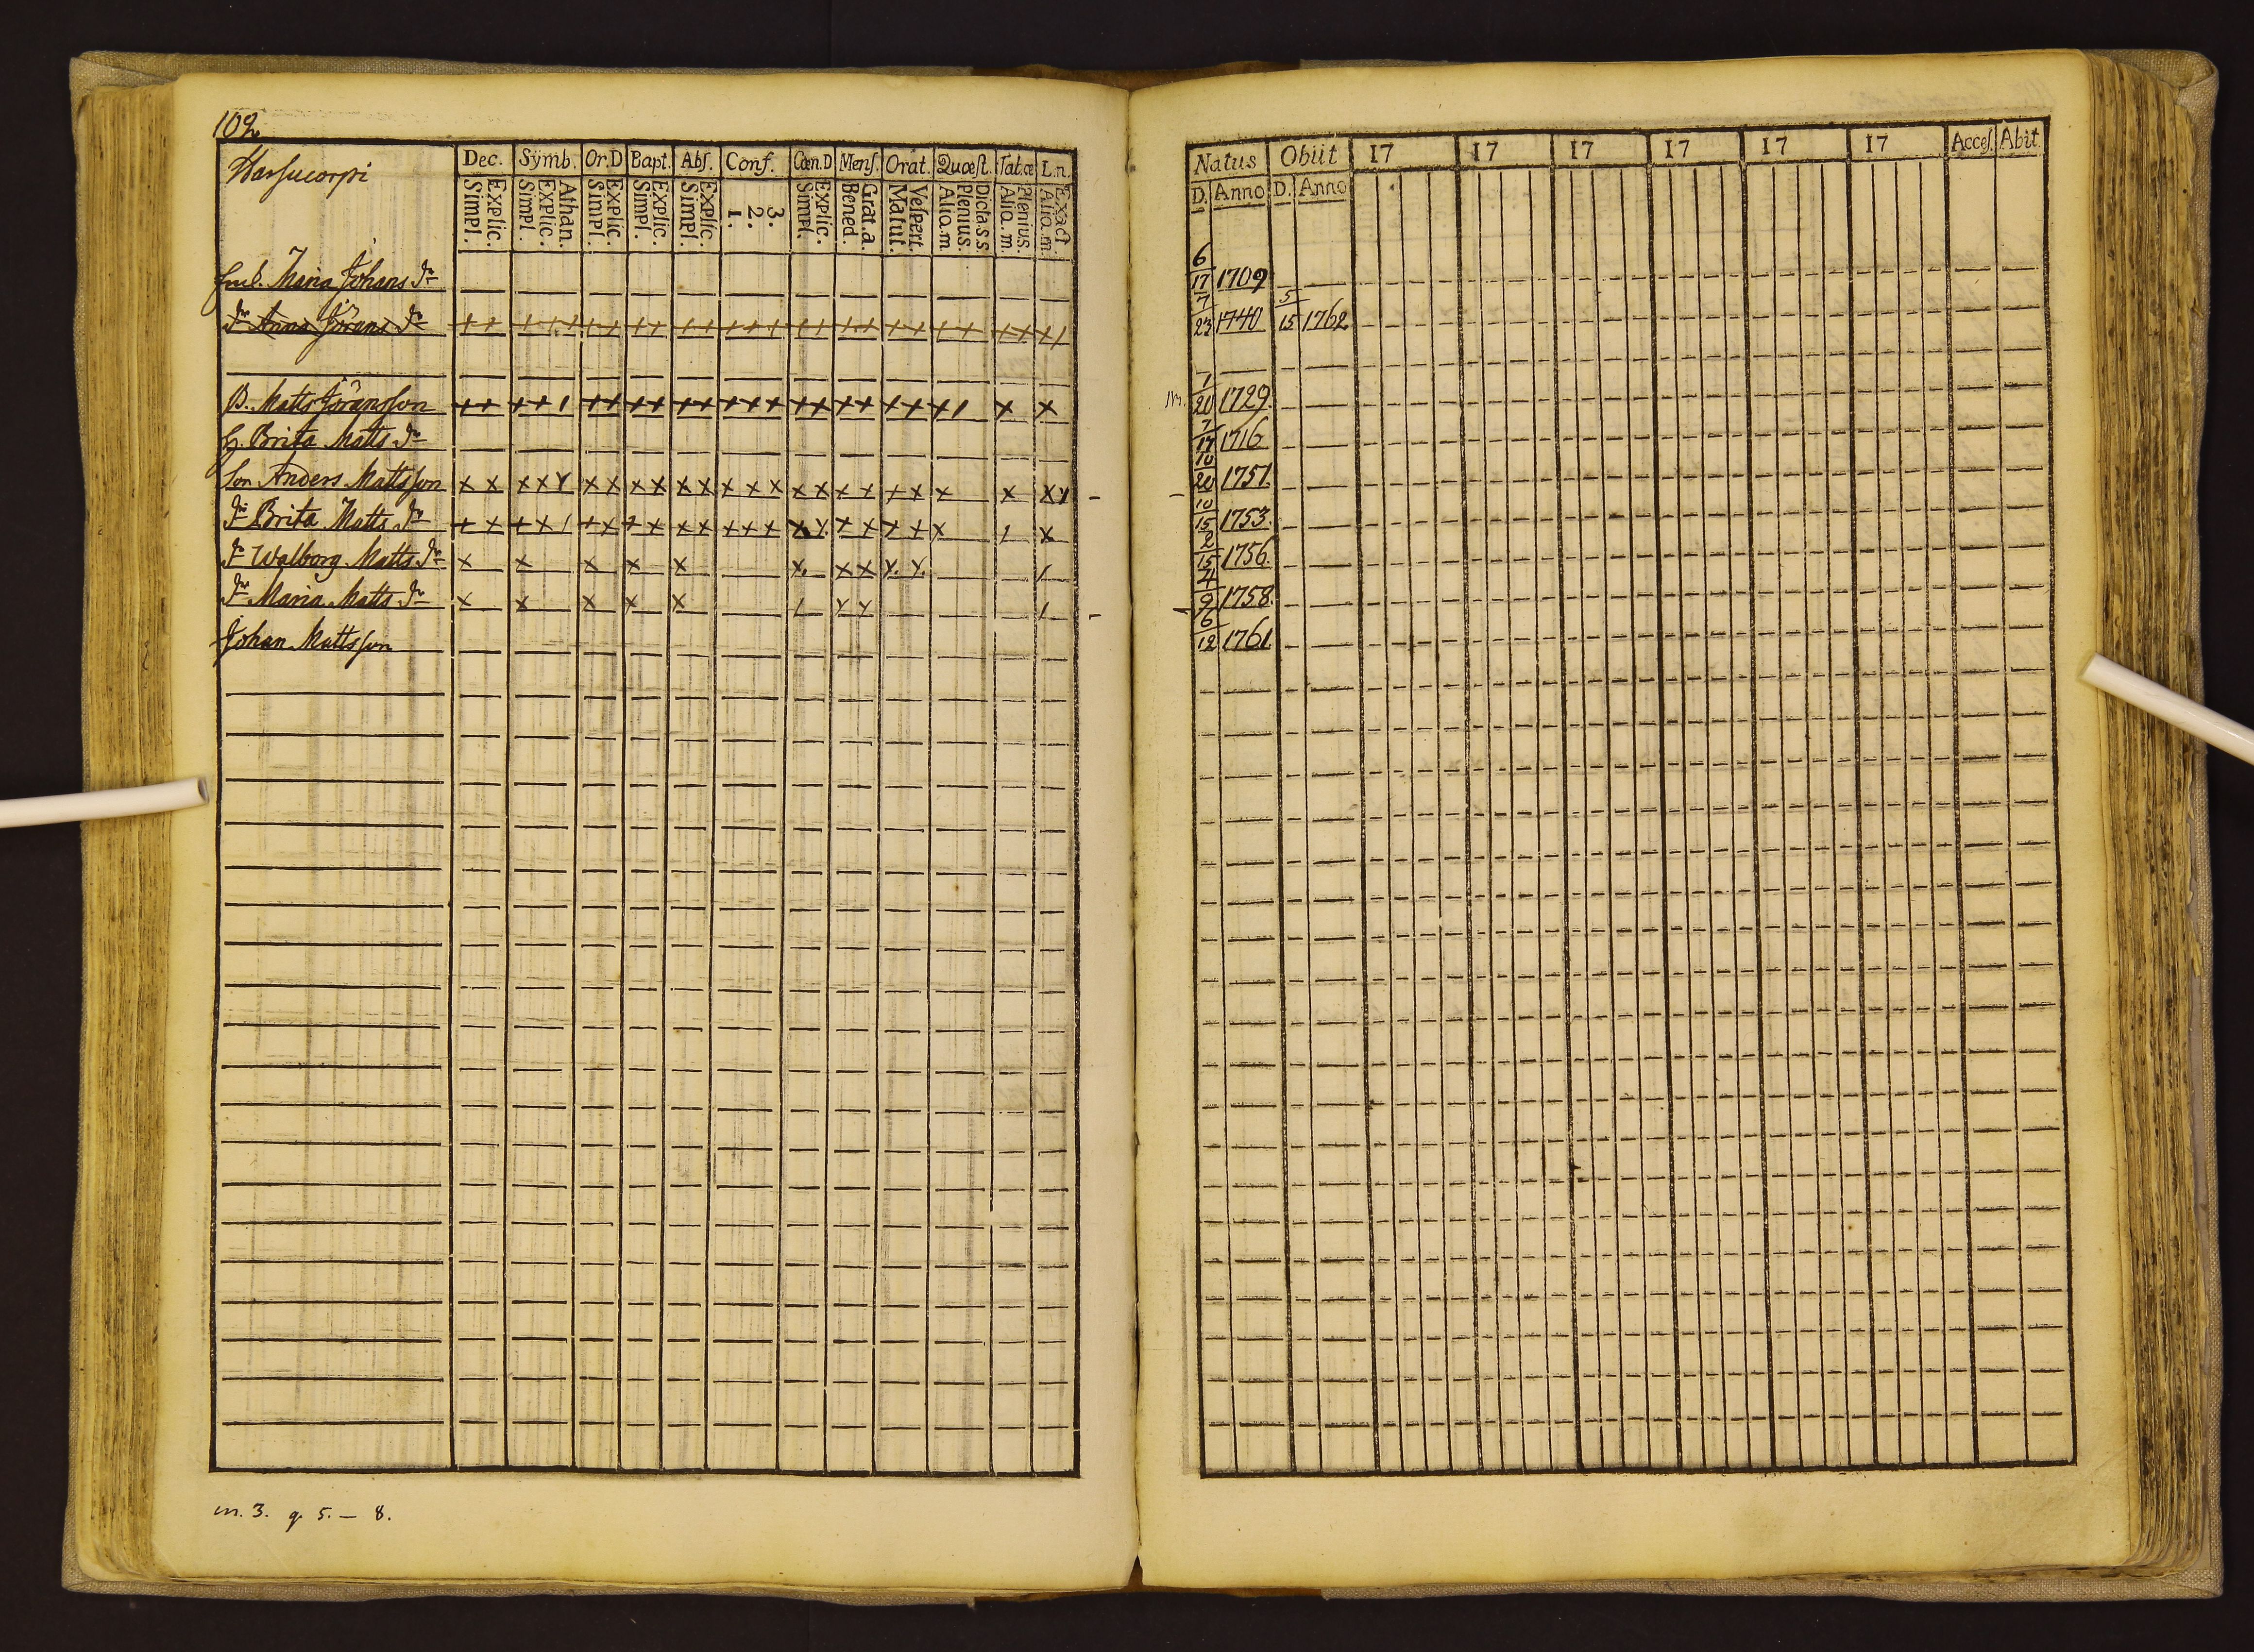 102
Harsucorpi
Dec. Symb. Or.D Bapt. Abs. Conf. Cœn.D Mens. Orat. Quæst. Tab.œ L.n.
Explic. Simpl. Athan. Explic. Simpl. Explic. Simpl. Explic. Simpl. Explic. Simpl. 3. 2. 1. Explic. Simpl. Grat.a. Bened. Vespert. Matut. Dicta.s.s. Plenius. Aliq.m Plenius. Aliq.m. Exact Aliq.m.
Enk. Maria Johans dr
dr Anna Jörans dr
B. Matts Jöransson
H. Brita Matts dr
Son Anders Mattsson
dr Brita Matts dr
dr Walborg Matts dr
dr Maria Matts dr
Johan Mattsson
m. 3. q. 5. — 8.
Natus Obiit 17 17 17 17 17 17 Acces. Abit.
D. Anno D. Anno
6/17 1709
7/23 1740 5/15 1762
1/20 1729.
7/17 1716
10/20 1751.
10/15 1753.
2/15 1756.
4/9 1758.
6/12 1761.